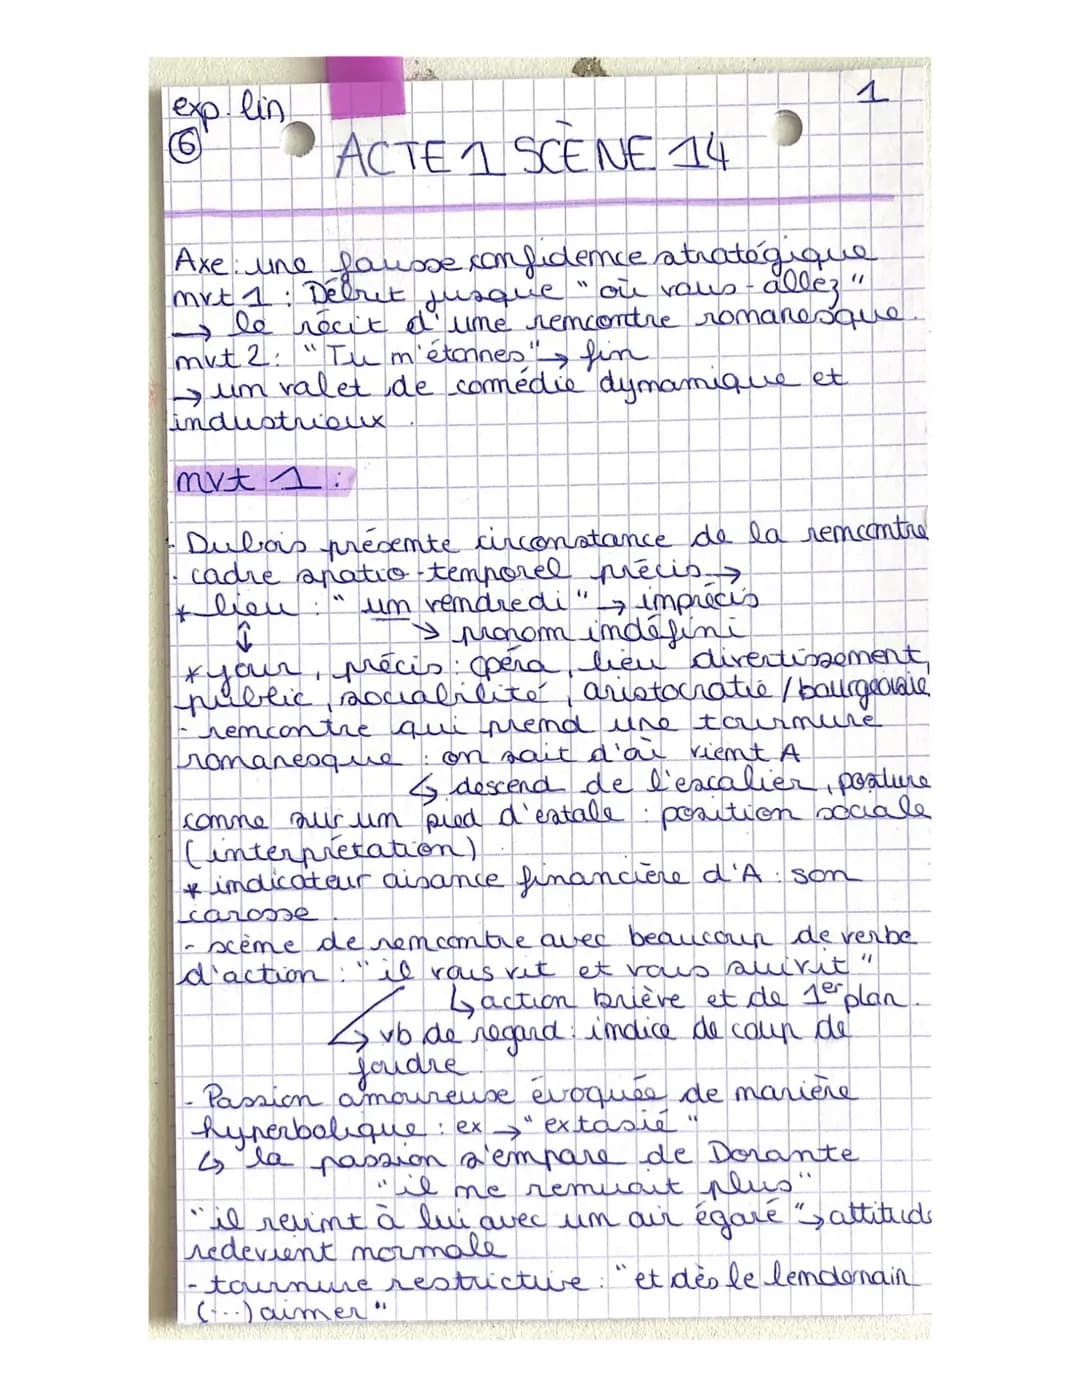 exp. lin
1
⑥
ACTE 1 SCÈNE 14
Axe : une fausse confidence stratégique
mvt 1 : Début jusque "où vous-allez"
→ le récit d'une rencontre romanesque.
mvt 2 : "Tu m'étonnes" → fin
→ un valet de comédie dynamique et
industrieux.
mvt 1 :
- Dubois présente circonstance de la rencontre
- cadre spatio-temporel précis →
* lieu : "un vendredi" → imprécis
↕ → pronom indéfini
* jour, précis : opéra, lieu divertissement,
public, sociabilité, aristocratie / bourgeoisie
- rencontre qui prend une tournure
romanesque : on sait d'où vient A
↳ descend de l'escalier, posture
comme sur un pied d'estale : position sociale
(interprétation)
* indicateur aisance financière d'A : son
carosse.
- scène de rencontre avec beaucoup de verbe
d'action : "il vous vit et vous suivit"
↳ action brève et de 1er plan.
↳ vb de regard : indice de coup de
foudre.
- Passion amoureuse évoquée de manière
hyperbolique : ex → "extasié"
↳ la passion s'empare de Dorante
"il me remuait plus"
"il revint à lui avec un air égaré" → attitude
redevient normale
- tournure restrictive : "et dès le lendemain
(...) aimer"